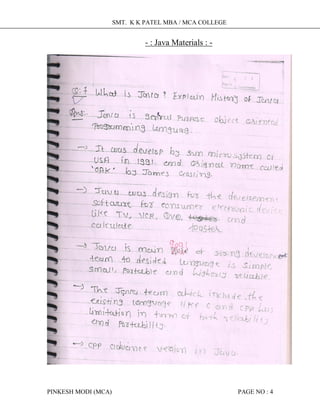 SMT. K K PATEL MBA / MCA COLLEGE
- : Java Materials : -
Q:1 What is Java ? Explain History of Java.
Ans: Java is General Purpose object oriented
Programming language.
→ It was develop by sun microsystem of
USA in 1991. and original name called
"OAK" by James Gosling.
→ Java was design for the development
software for consumer electronic device
like TV, VCR, and
calculate toaster
→ Java is main of strong development
team to desided Language is simple
small, Portable and highly reliable.
→ The Java team which include the
existing language like C and CPP has
limitation in term of both reliability
and Portability.
→ CPP advance version in Java.
PINKESH MODI (MCA) PAGE NO : 4